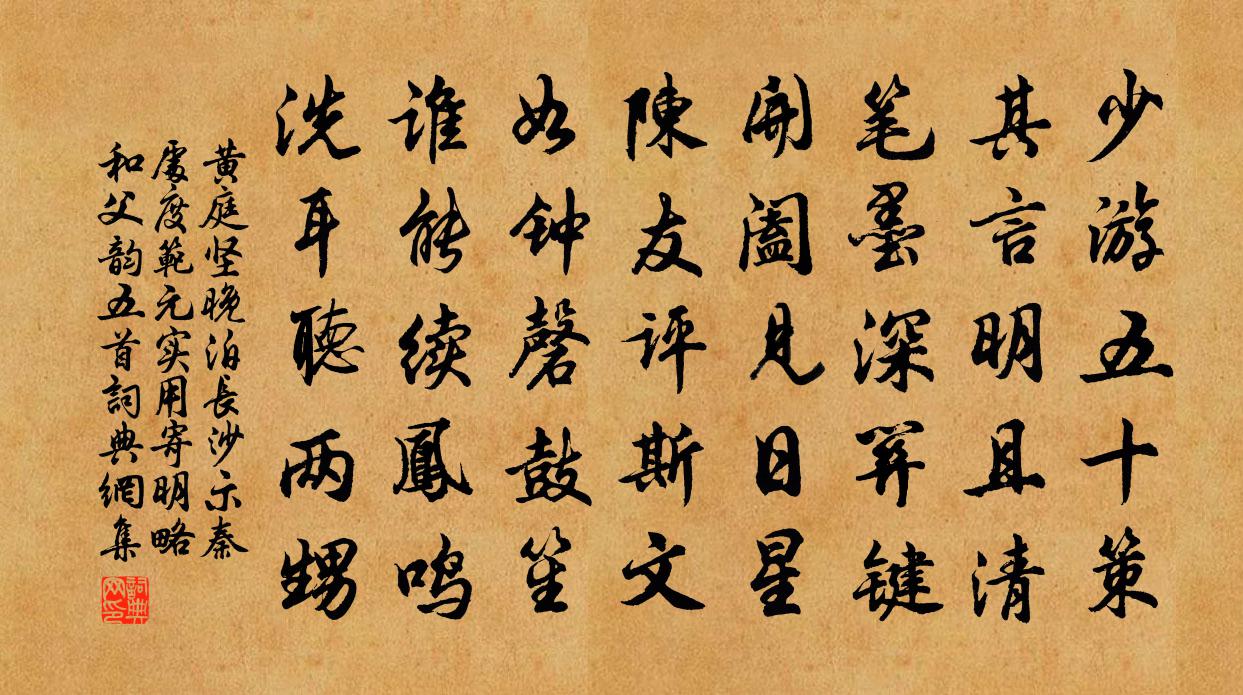 少游五十策
其言明且清
笔墨深关键
開阖见日星
陳友评斯文
如钟磬鼓笙
谁能续鳳鸣
洗耳聽两甥
黄庭坚晚泊長沙示秦
處度範元实用寄明略
和父韵五首詞典網集
詞典网印